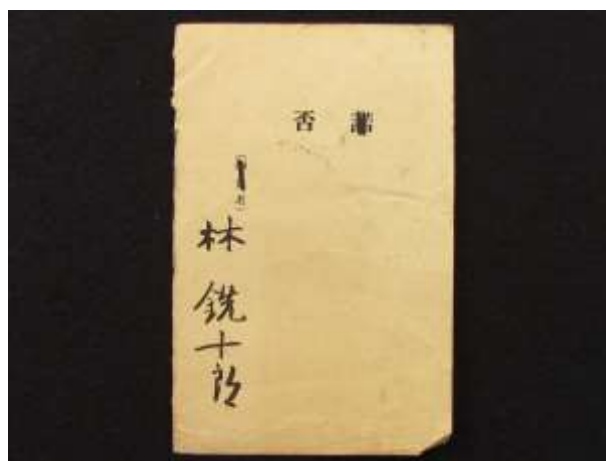 諾 否
林 銑十郎